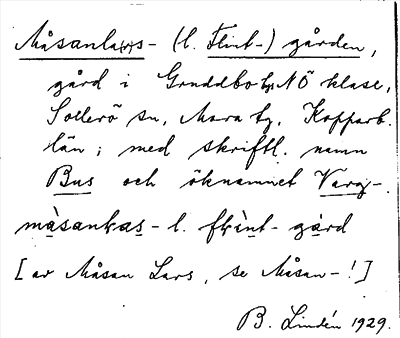 Måsanla(r)s- (l. Flint-) gården,
gård i Gruddbo by, NÖ klase,
Sollerö sn, Mora tg, Kopparb.
län; med skriftl. namn
Bus och öknamnet Varg-.
màsanḷas- l. flìnt- gárd
[av Måsan Lars, se Måsan-!]
B. Lindén 1929.